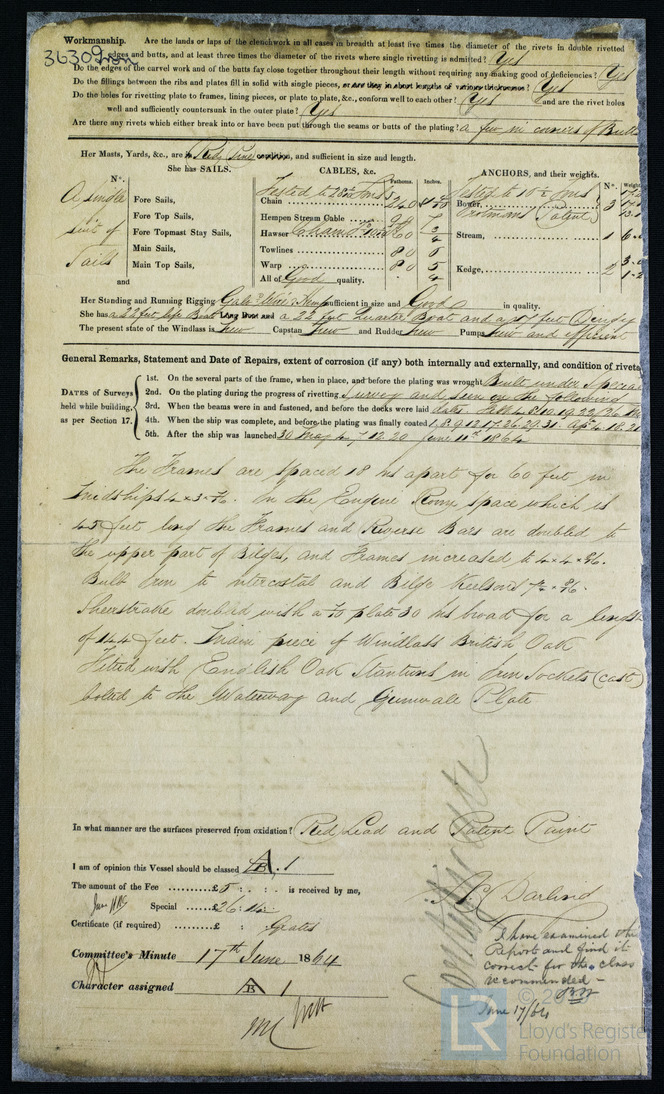 Workmanship. Are the lands or laps of the clenchwork in all cases in breadth at least five times the diameter of the rivets in double rivetted
36309 Iron
edges and butts, and at least three times the diameter of the rivets where single rivetting is admitted? Yes
Do the edges of the carvel work and of the butts fay close together throughout their length without requiring any making good of deficiencies? Yes
Do the fillings between the ribs and plates fill in solid with single pieces, or are they in short lengths of various thicknesses? Yes
Do the holes for rivetting plate to frames, lining pieces, or plate to plate, &c., conform well to each other? Yes and are the rivet holes
well and sufficiently countersunk in the outer plate? Yes
Are there any rivets which either break into or have been put through the seams or butts of the plating? a few in corners of Butts
Her Masts, Yards, &c., are in condition, and sufficient in size and length.
She has SAILS. CABLES, &c. ANCHORS, and their weights.
N°. Fathoms. Inches. N°. Weight
A single suit of Sails
Fore Sails,
Fore Top Sails,
Fore Topmast Stay Sails,
Main Sails,
Main Top Sails,
and
Tested to
Chain 240
Hempen Stream Cable
Hawser 60
Towlines 80 6
Warp 80 5
All of Good quality.
Tested to
Bower, Trotmans Patent 3
Stream, 1
Kedge, 2
Her Standing and Running Rigging Galv. Wire & Hemp sufficient in size and Good in quality.
She has a 22 feet life Boat Long Boat and a 22 feet Quarter Boat and a feet
The present state of the Windlass is New Capstan New and Rudder New Pumps New and efficient
General Remarks, Statement and Date of Repairs, extent of corrosion (if any) both internally and externally, and condition of rivets
DATES of Surveys held while building, as per Section 17.
1st. On the several parts of the frame, when in place, and before the plating was wrought Built under Special
2nd. On the plating during the progress of rivetting Survey and seen on the following
3rd. When the beams were in and fastened, and before the decks were laid dates. Feb 4. 8. 10. 19. 22. 26
4th. When the ship was complete, and before the plating was finally coated 1. 8. 9. 12. 17. 26. 29. 31. Apl 4. 18. 21
5th. After the ship was launched 30 May 4. 7. 12. 20 June 11th 1864
The Frames are spaced 18 ins apart for 60 feet in
Midships 4 × 3 ×. In the Engine Room space which is
45 feet long the Frames and Reverse Bars are doubled to
the upper part of Bilges, and Frames increased to 4 × 4 ×.
Bulb Iron to intercostal and Bilge Keelsons
Sheerstrake doubled with a plate 30 ins broad for a length
of 144 feet. Main piece of Windlass British Oak
Fitted with English Oak Stantions in Iron Sockets (cast)
bolted to the Waterway and Gunwale Plate
In what manner are the surfaces preserved from oxidation? Red Lead and Patent Paint
I am of opinion this Vessel should be classed A 1
The amount of the Fee £5 : . : . is received by me,
Special £26
Certificate (if required) £ : Gratis
Committee's Minute 17th June 1864
Character assigned A B 1
Darling
I have examined this
Report and find it
correct for the class
recommended -
June 17/64
© 20
LR
Lloyd's Register
Foundation